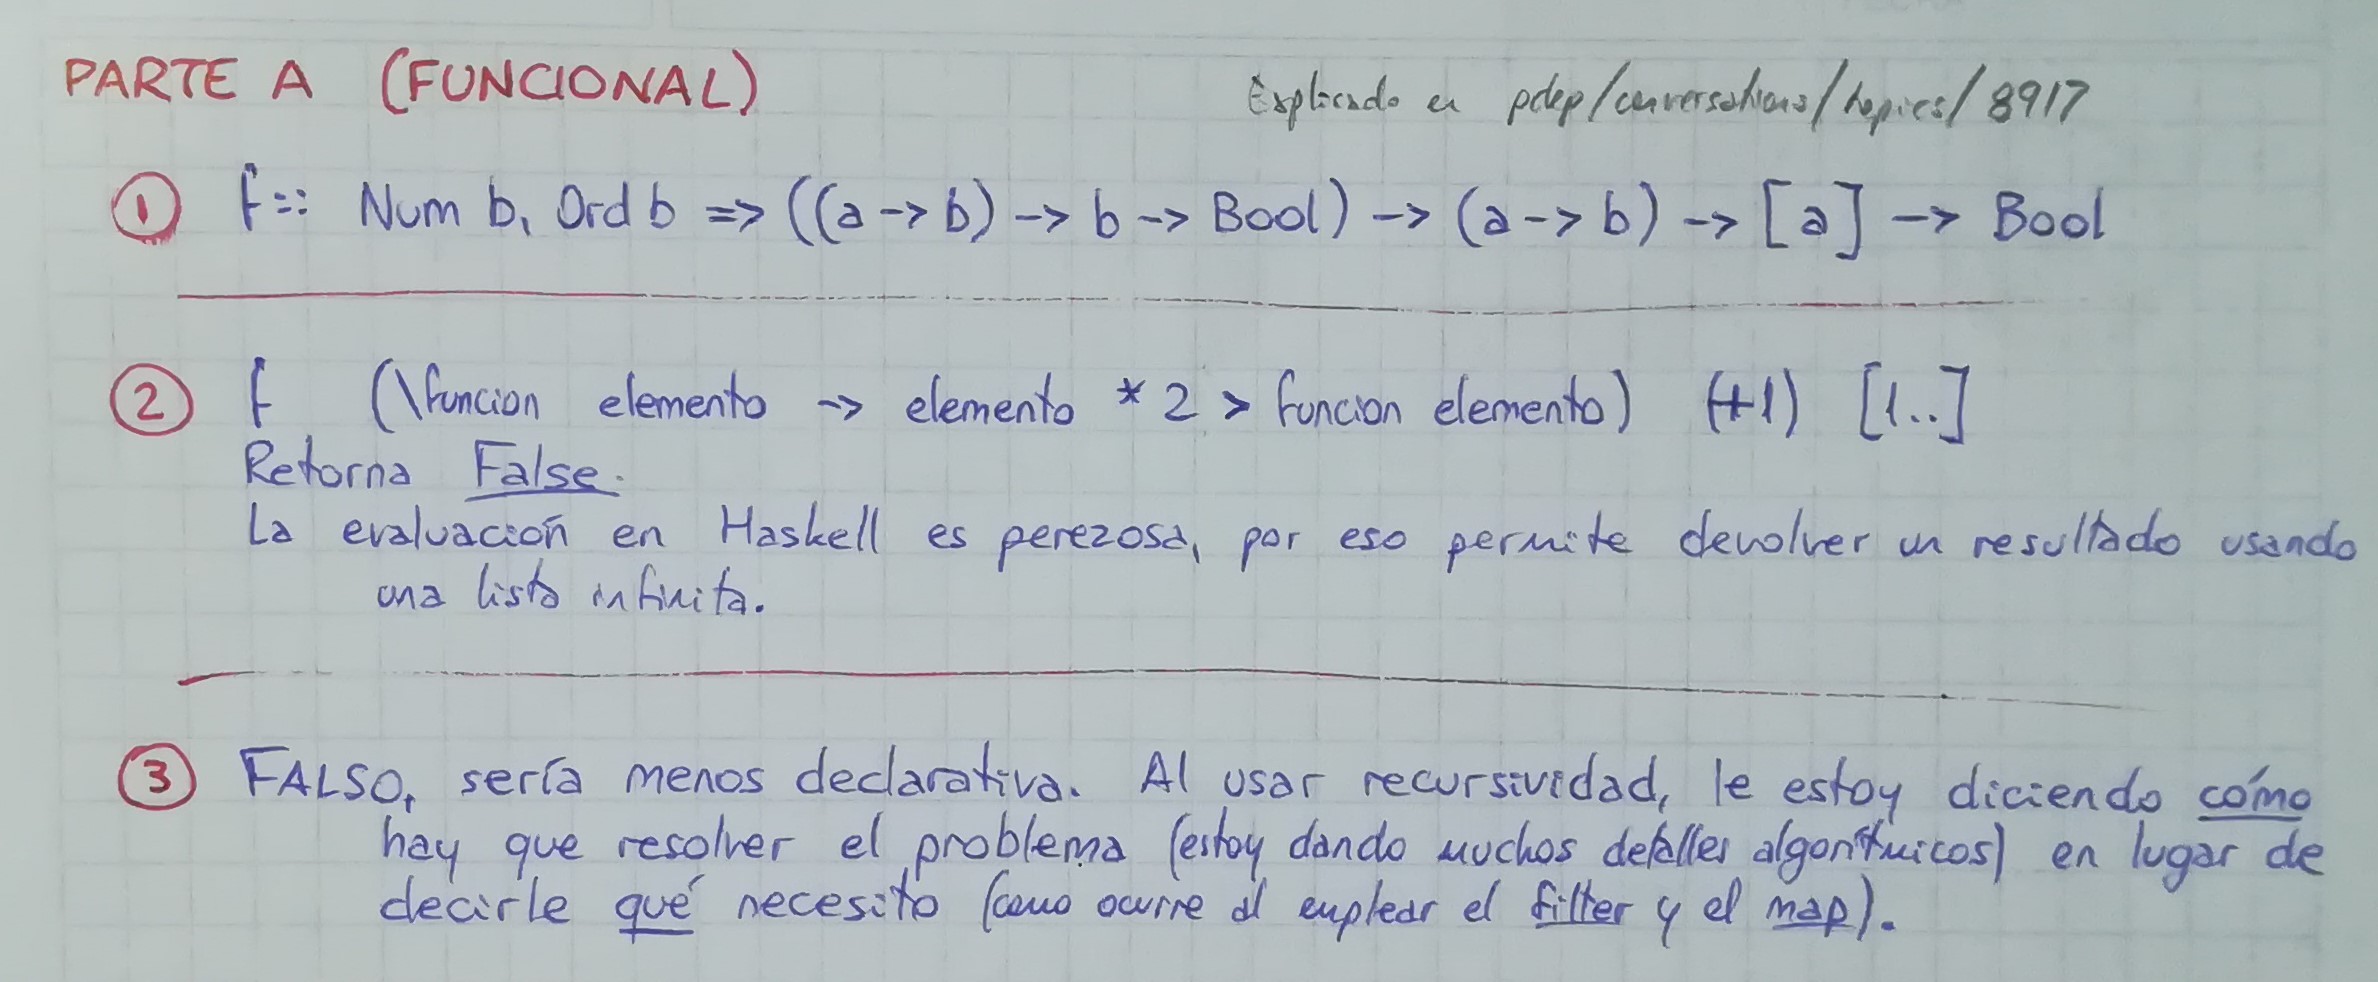 PARTE A (FUNCIONAL)
Explicado en pdep/conversations/topics/8917
① f:: Num b, Ord b => ((a -> b) -> b -> Bool) -> (a -> b) -> [a] -> Bool
② f (\funcion elemento -> elemento * 2 > funcion elemento) (+1) [1..]
Retorna False.
La evaluación en Haskell es perezosa, por eso permite devolver un resultado usando
una lista infinita.
③ FALSO, sería menos declarativa. Al usar recursividad, le estoy diciendo cómo
hay que resolver el problema (estoy dando muchos detalles algorítmicos) en lugar de
decirle qué necesito (como ocurre al emplear el filter y el map).